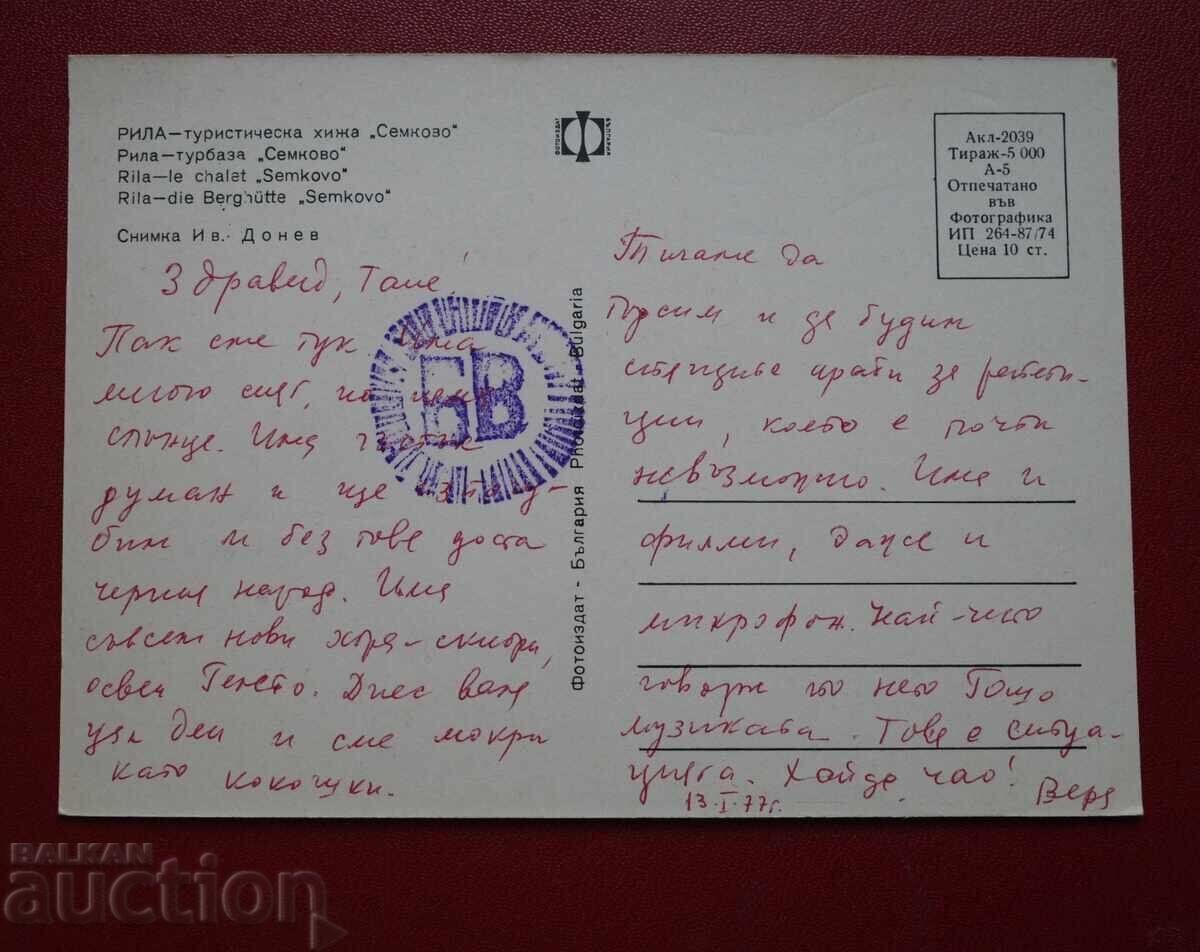 РИЛА—туристическа хижа „Семково"
Рила—турбаза „Семково"
Rila—le chalet „Semkovo"
Rila—die Berghütte „Semkovo"
Снимка Ив. Донев
ФОТОИЗДАТ
Акл-2039
Тираж-5 000
А-5
Отпечатано
във
Фотографика
ИП 264-87/74
Цена 10 ст.
Фотоиздат - България Photoizdat - Bulgaria
БВ
Здравей, Тане!
Пак сме тук. Има
много сняг, но няма
слънце. Има гъсти
думан и ще
бим и без това доста
черния народ. Има
съвсем нови хора-скиори,
освен Генето. Днес валя
цял ден и сме мокри
като кокошки.
Тичаме да
търсим и да будим
спящите братя за репети-
ции, което е почти
невъзможно. Има и
филми, даже и
микрофон. Най-често
говори по него Гошо
музиката. Това е ситуа-
цията. Хайде, чао!
13.I.77г. Вера
BALKAN
auction